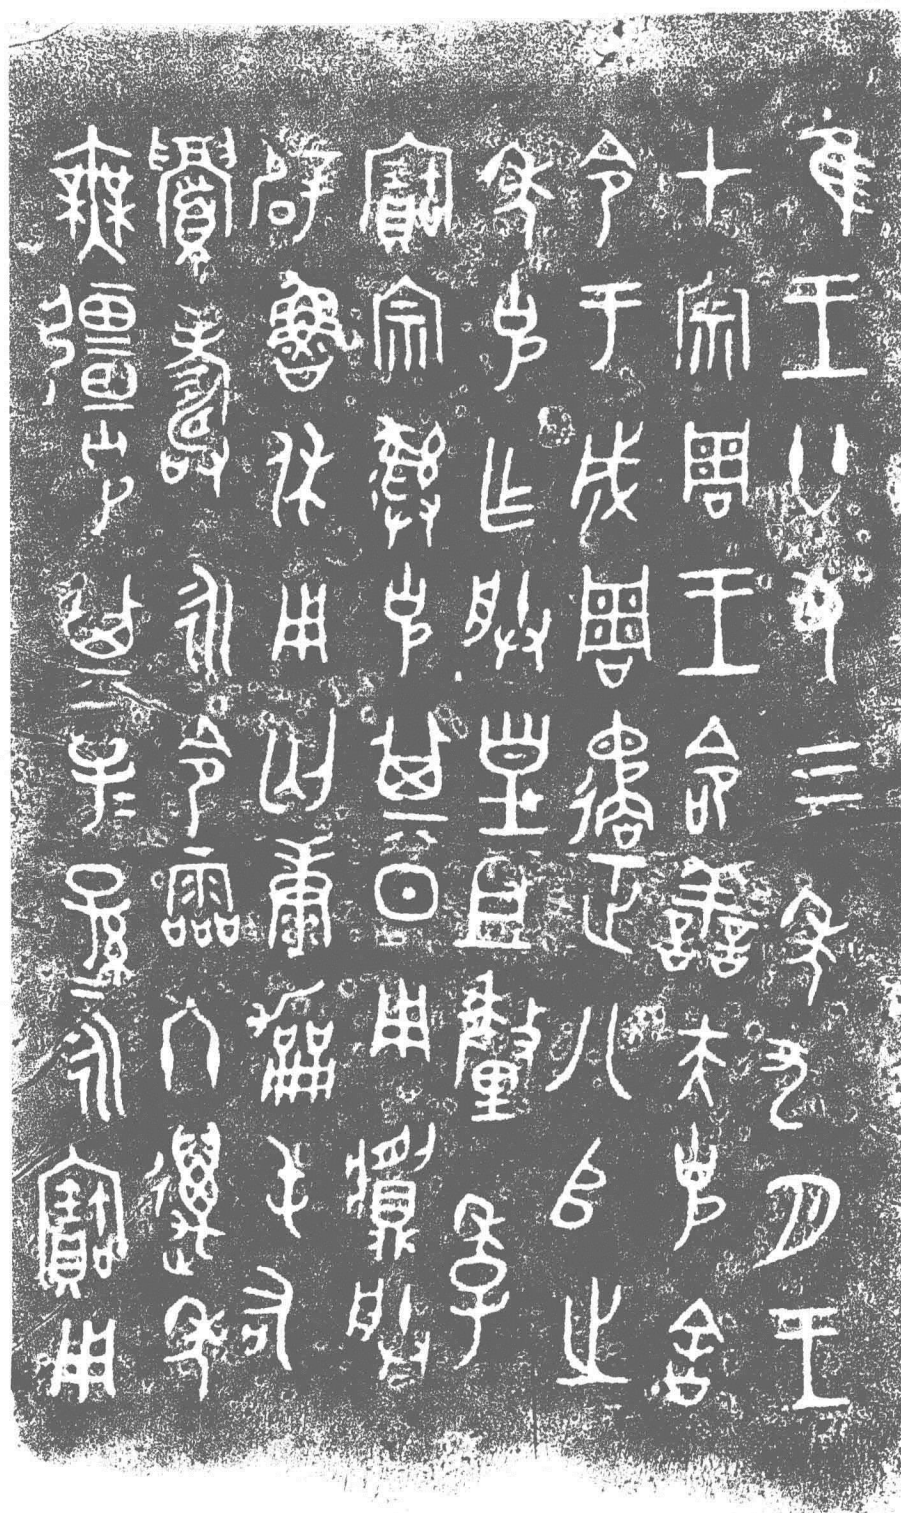 隹王廿又三年九月王
才宗周王命善夫克舍
令于成周遹正八𠂤之
年克乍朕皇且釐季
寶宗彝克其日用䵼朕
辟魯休用匄康勵屯右
眉壽永令霝冬邁年
無疆克其子=孫=永寶用